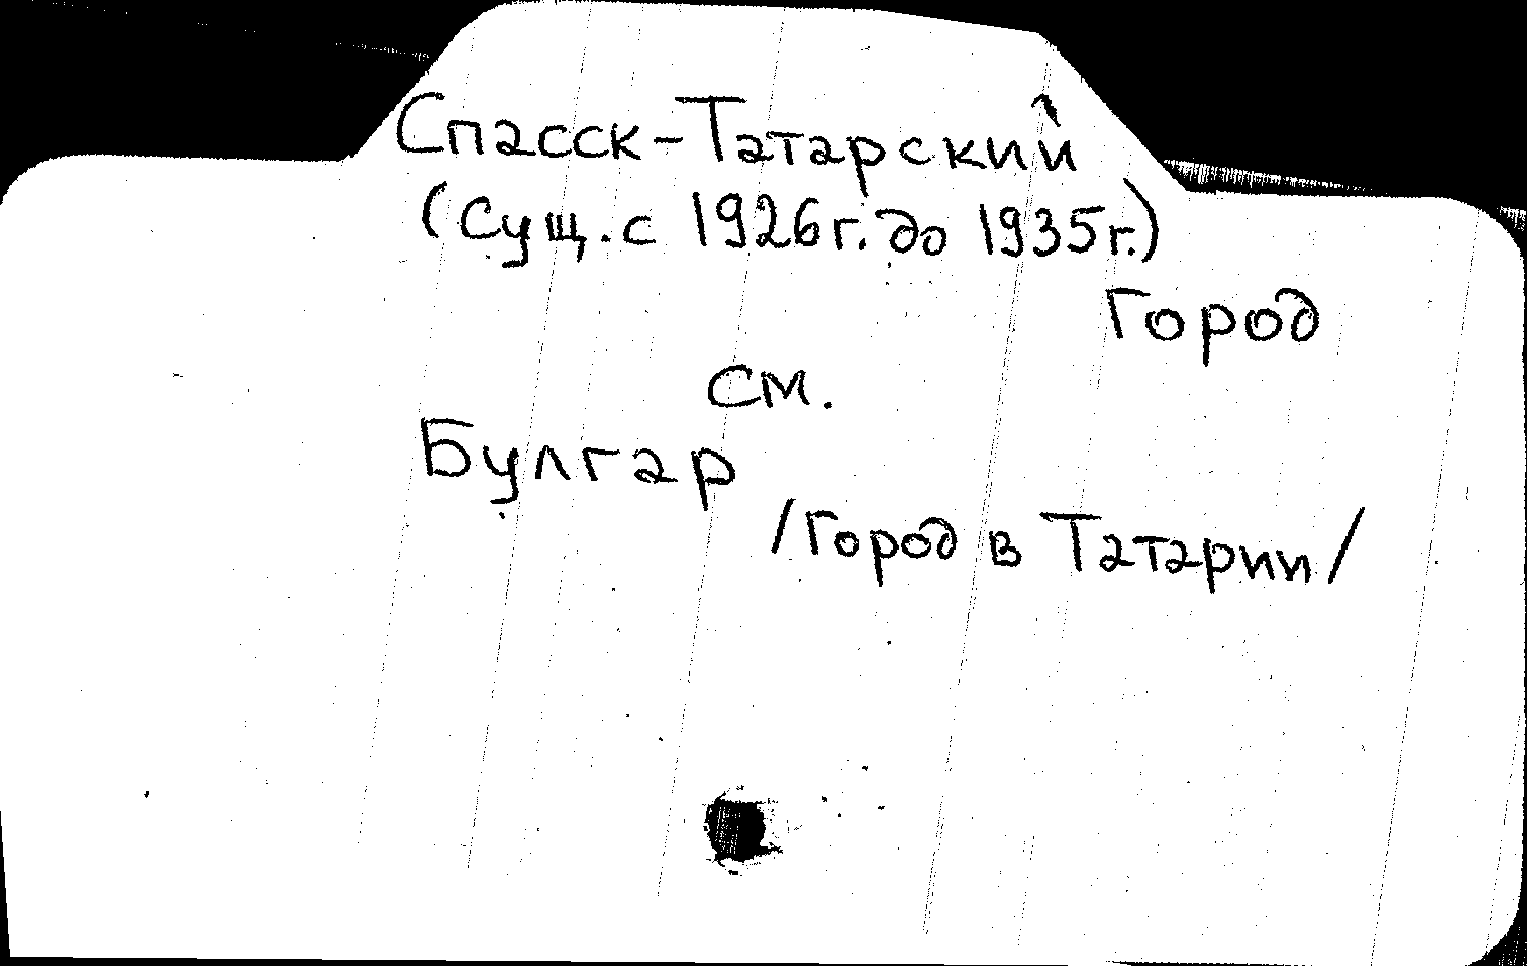 Спасск-Татарский
(Сущ. с 1926г. до 1935г.)
Город
см.
Булгар
/Город в Татарии/